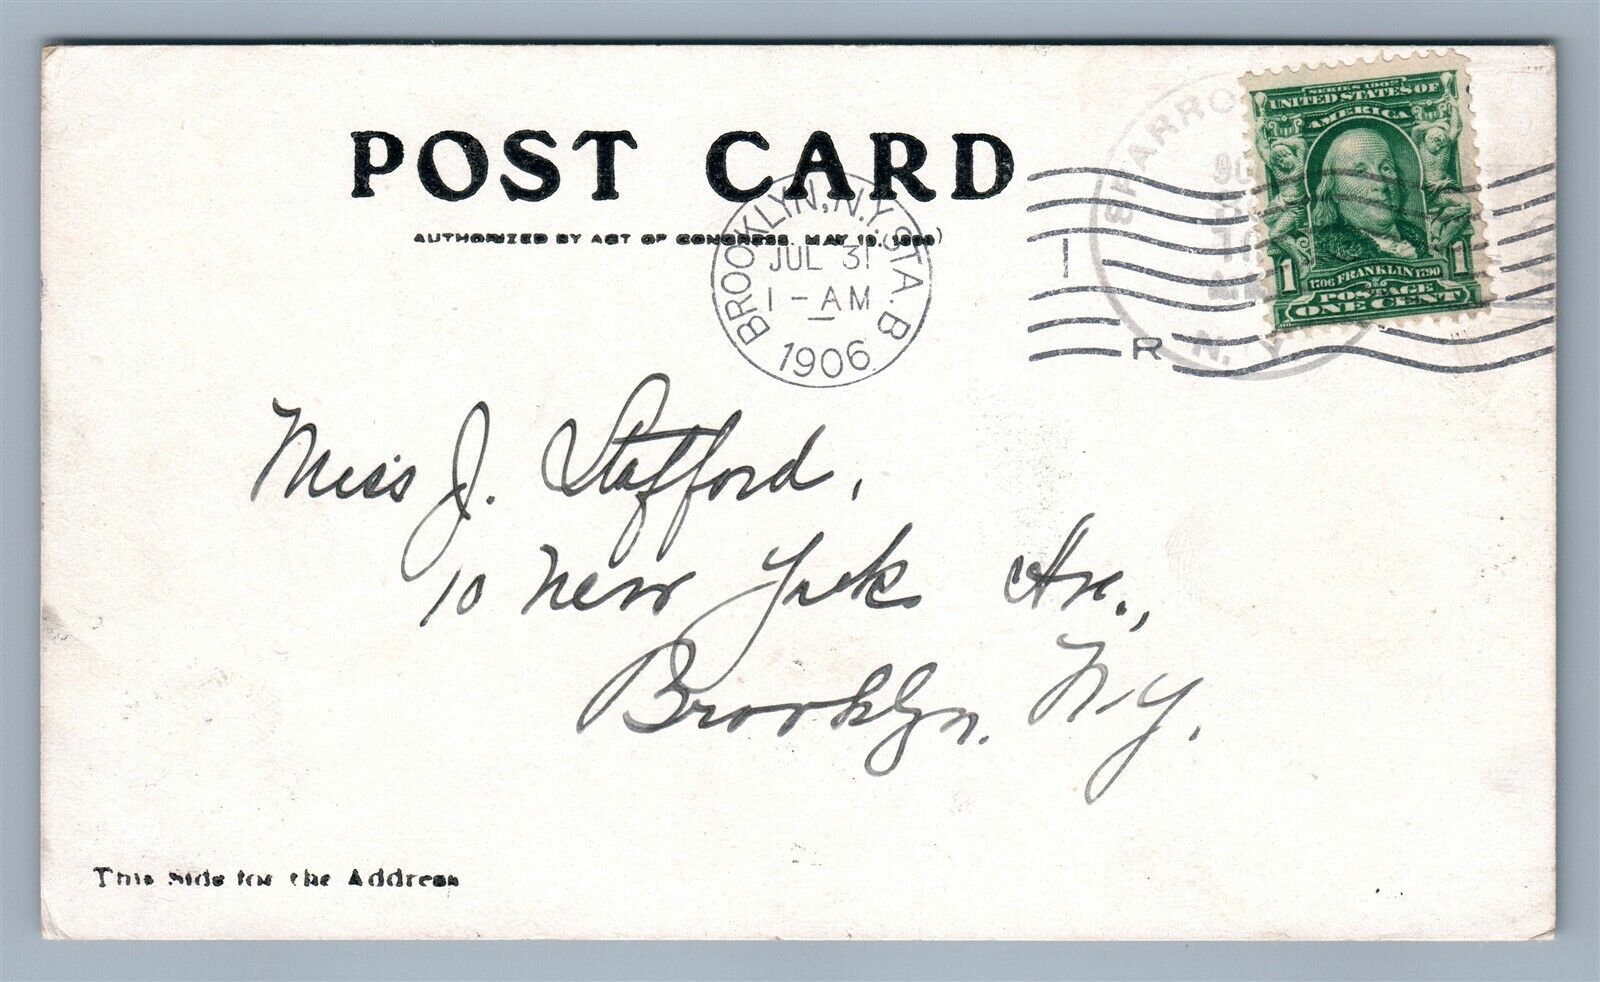 POST CARD
AUTHORIZED BY ACT OF CONGRESS, MAY 19, (1898)
BROOKLYN, N.Y. STA. B
JUL 31
1 - AM
1906
I
R
SHARRO
N. Y
SERIES 1902
UNITED STATES OF
AMERICA
1 1706 FRANKLIN 1790 1
POSTAGE
ONE CENT
Miss J. Stafford,
10 New York Av.,
Brooklyn. N.Y.
This Side for the Address